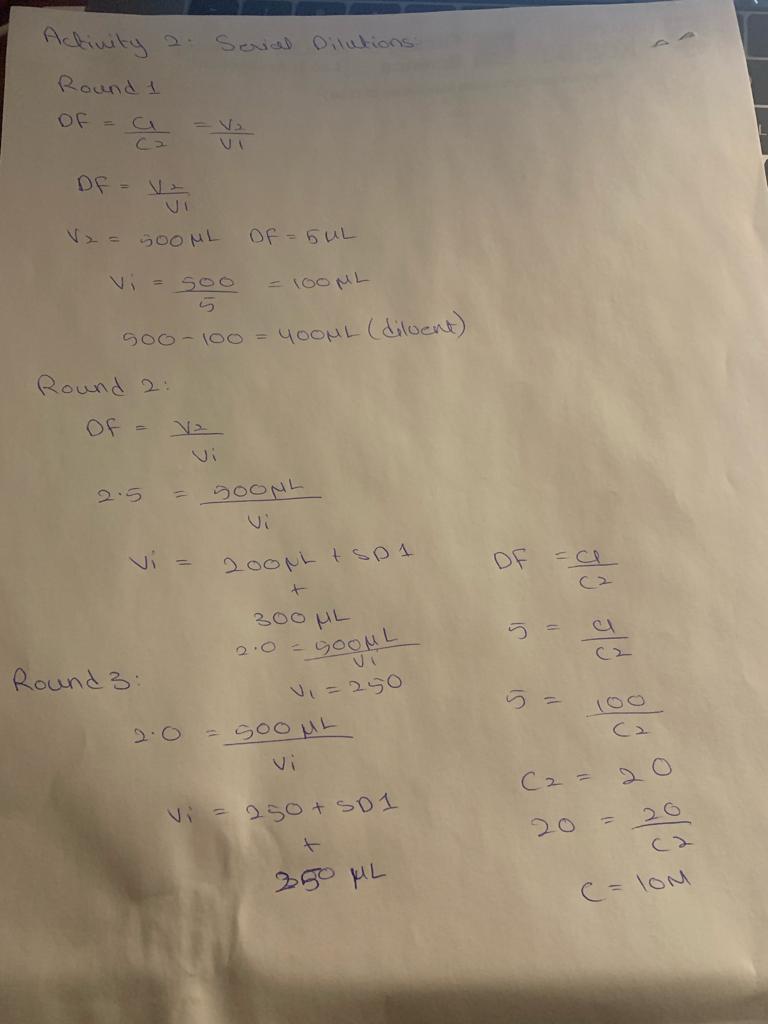 Activity 2: Serial Dilutions
Round 1
DF = C1/C2 = V2/V1
DF = V2/Vi
V2 = 500 µL DF = 5 µL
Vi = 500/5 = 100 µL
500 - 100 = 400 µL (diluent)
Round 2:
DF = V2/Vi
2.5 = 500 µL/Vi
Vi = 200 µL + SD1
+
300 µL
2.0 = 500 µL/Vi
V1 = 250
Round 3:
2.0 = 500 µL/Vi
Vi = 250 + SD1
+
250 µL
DF = C1/C2
5 = C1/C2
5 = 100/C2
C2 = 20
20 = 20/C2
C = 10M